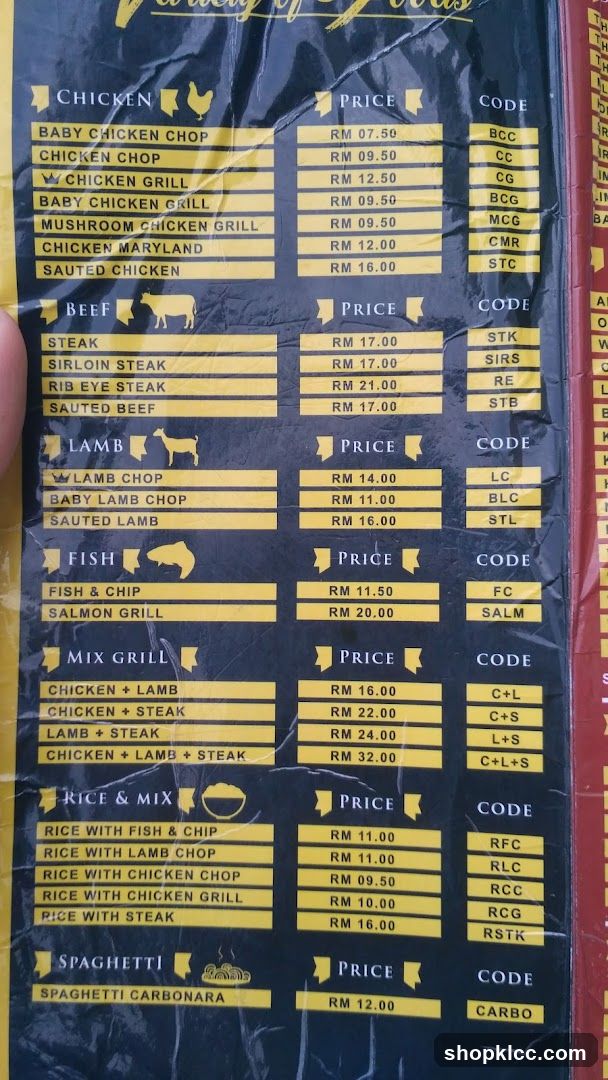 Variety of Foods
CHICKEN PRICE CODE
BABY CHICKEN CHOP RM 07.50 BCC
CHICKEN CHOP RM 09.50 CC
CHICKEN GRILL RM 12.50 CG
BABY CHICKEN GRILL RM 09.50 BCG
MUSHROOM CHICKEN GRILL RM 09.50 MCG
CHICKEN MARYLAND RM 12.00 CMR
SAUTED CHICKEN RM 16.00 STC
BEEF PRICE CODE
STEAK RM 17.00 STK
SIRLOIN STEAK RM 17.00 SIRS
RIB EYE STEAK RM 21.00 RE
SAUTED BEEF RM 17.00 STB
LAMB PRICE CODE
LAMB CHOP RM 14.00 LC
BABY LAMB CHOP RM 11.00 BLC
SAUTED LAMB RM 16.00 STL
FISH PRICE CODE
FISH & CHIP RM 11.50 FC
SALMON GRILL RM 20.00 SALM
MIX GRILL PRICE CODE
CHICKEN + LAMB RM 16.00 C+L
CHICKEN + STEAK RM 22.00 C+S
LAMB + STEAK RM 24.00 L+S
CHICKEN + LAMB + STEAK RM 32.00 C+L+S
RICE & MIX PRICE CODE
RICE WITH FISH & CHIP RM 11.00 RFC
RICE WITH LAMB CHOP RM 11.00 RLC
RICE WITH CHICKEN CHOP RM 09.50 RCC
RICE WITH CHICKEN GRILL RM 10.00 RCG
RICE WITH STEAK RM 16.00 RSTK
SPAGHETTI PRICE CODE
SPAGHETTI CARBONARA RM 12.00 CARBO
shopklcc.com